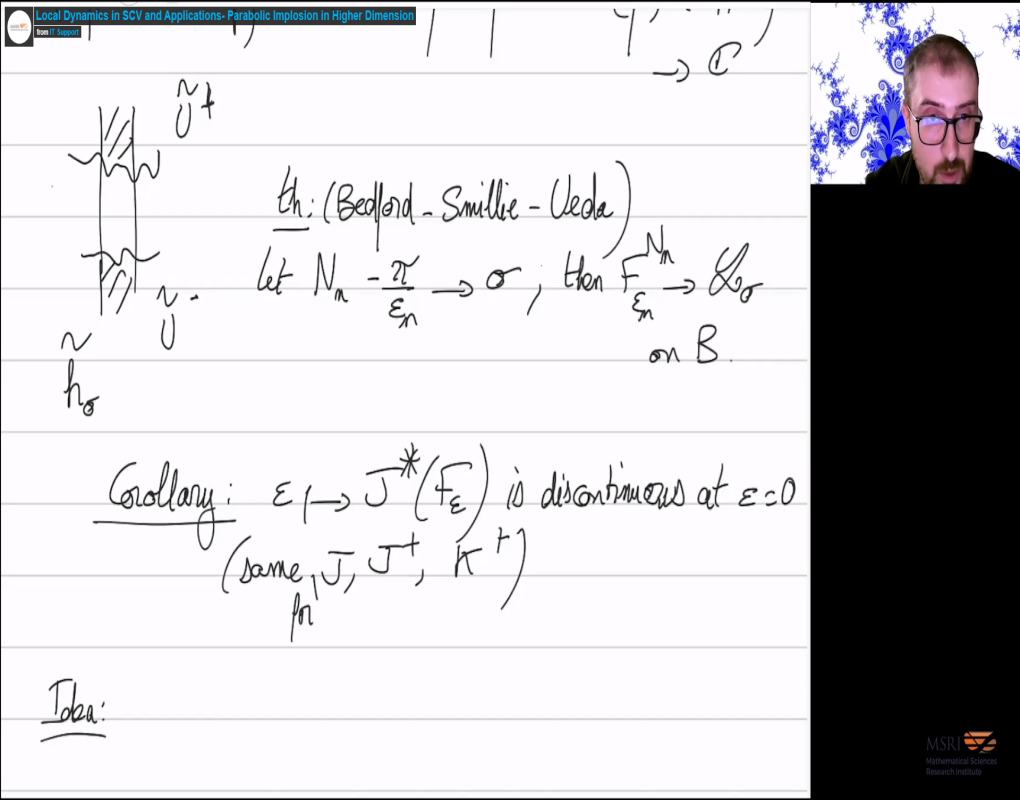 Local Dynamics in SCV and Applications- Parabolic Implosion in Higher Dimension
from IT Support
→ ℂ
Ũ⁺
th: (Bedford - Smillie - Ueda)
let Nₙ - π/εₙ → σ ; then F_{εₙ}^{Nₙ} → ℒ_σ
Ũ⁻
on B.
h̃_σ
Corollary: ε ↦ J*(F_ε) is discontinuous at ε=0
(same for J, J⁺, K⁺)
Idea:
MSRI
Mathematical Sciences
Research Institute